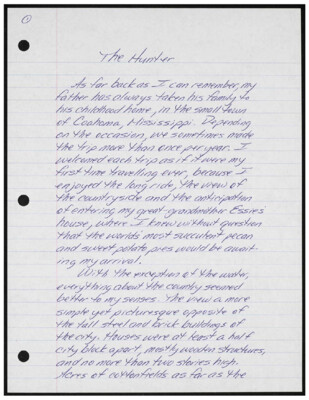 1
The Hunter
As far back as I can remember, my
father has always taken his family to
his childhood home, in the small town
of Coahoma, Mississippi. Depending
on the occasion, we sometimes made
the trip more than once per year. I
welcomed each trip as if it were my
first time travelling ever, because I
enjoyed the long ride, the view of
the countryside and the anticipation
of entering my great-grandmother Essie's
house, where I knew without question
that the worlds most succulent pecan
and sweet potato pies would be await-
ing my arrival.
With the exception of the water,
everything about the country seemed
better to my senses. The view a more
simple yet picturesque opposite of
the tall steel and brick buildings of
the city. Houses were at least a half
city block apart, mostly wooden structures,
and no more than two stories high.
Acres of cottonfields as far as the